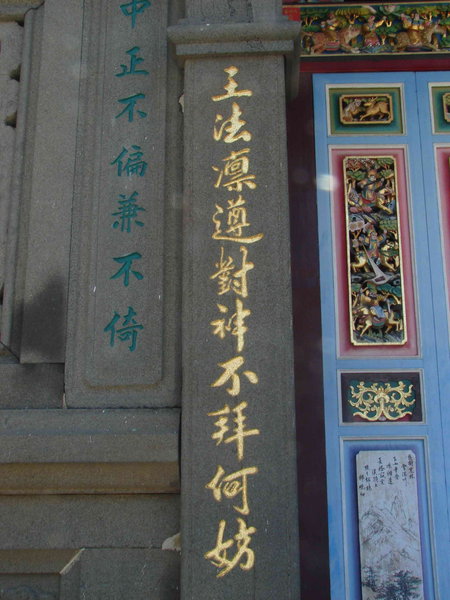 王法凛遵對神不拜何妨
中正不偏兼不倚